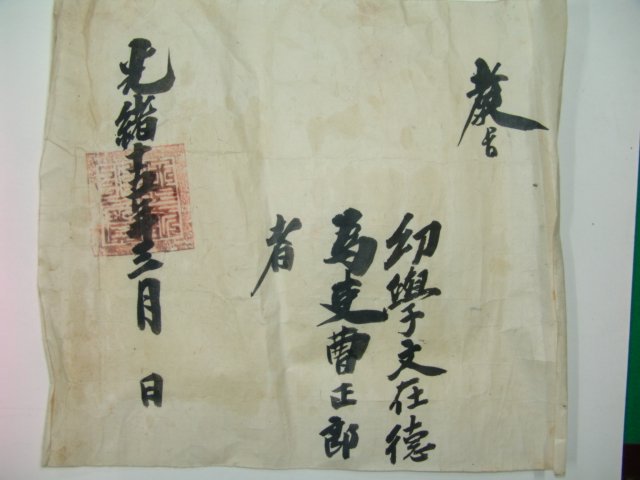 敎旨
幼學文在德
爲吏曹正郎
者
光緖十五年三月 日